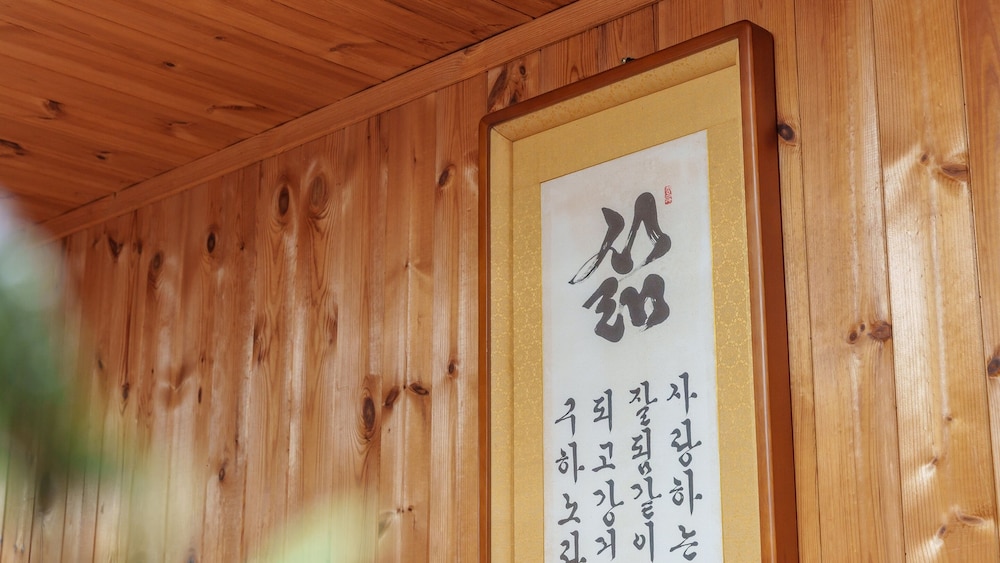 삶
사랑하는
잘됨같이
되고강
구하노라